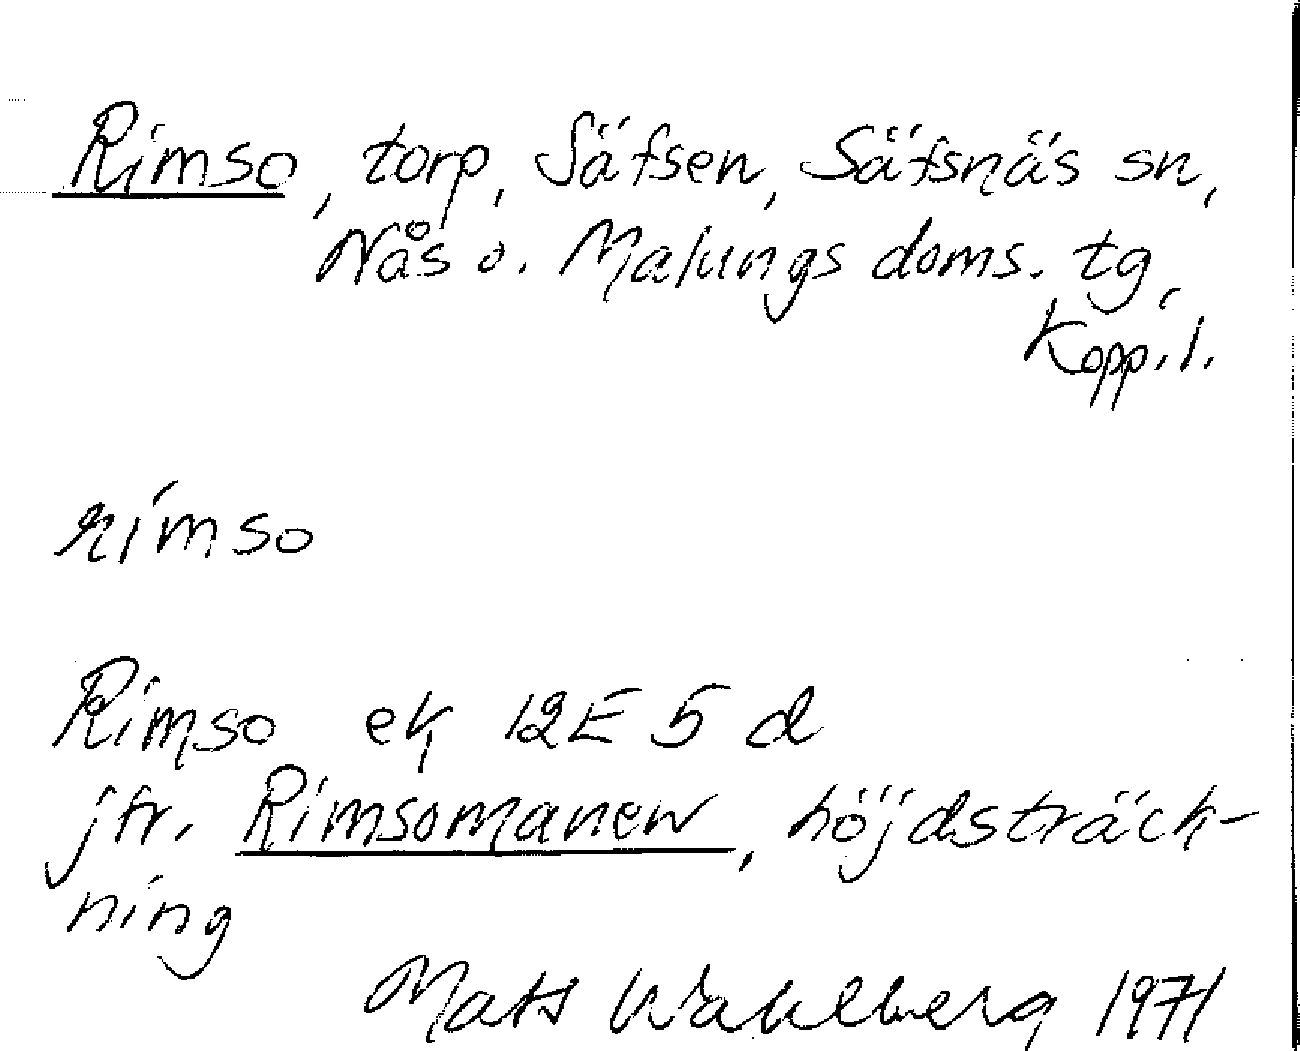 Rimso, torp, Säfsen, Säfsnäs sn,
Nås o. Malungs doms. tg,
Kopp. l.
rimso
Rimso ek 12E 5 d
jfr. Rimsomanen, höjdsträck-
ning
Mats Wahlberg 1971